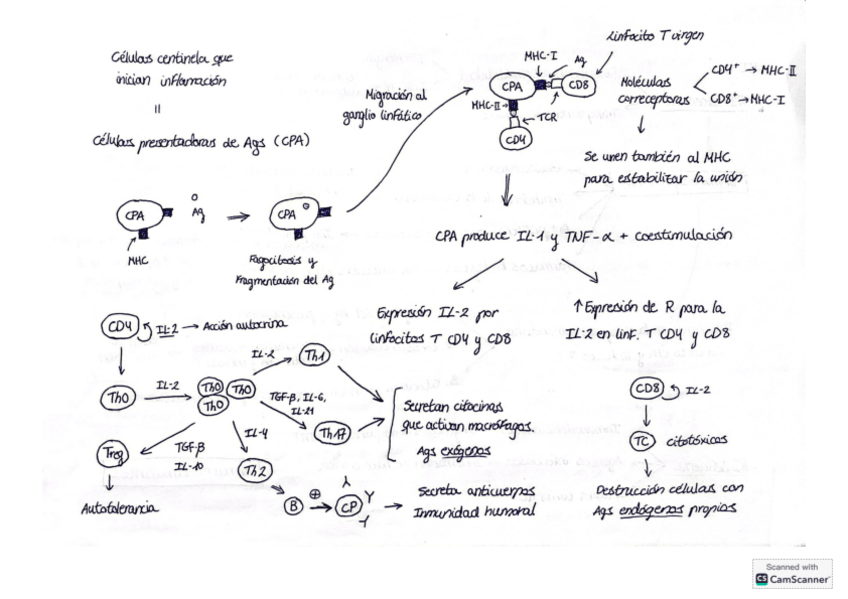 Células centinela que
inician inflamación
=
Células presentadoras de Ags (CPA)
CPA
Ag
MHC
CPA
Fagocitosis y
Fragmentación del Ag
Migración al
ganglio linfático
Linfocito T virgen
MHC-I
Ag
CPA
CD8
MHC-II
TCR
CD4
Moléculas
correceptoras
CD4⁺ → MHC-II
CD8⁺ → MHC-I
Se unen también al MHC
para estabilizar la unión
CPA produce IL-1 y TNF-α + coestimulación
Expresión IL-2 por
linfocitos T CD4 y CD8
↑ Expresión de R para la
IL-2 en linf. T CD4 y CD8
CD4
IL-2 → Acción autocrina
Th0
IL-2
Th0
Th0
Th0
IL-2
Th1
TGF-β, IL-6,
IL-21
Th17
Secretan citocinas
que activan macrófagos.
Ags exógenos
Treg
TGF-β
IL-10
Autotolerancia
IL-4
Th2
B
⊕
CP
Y
Secreta anticuerpos
Inmunidad humoral
CD8
IL-2
TC
citotóxicos
Destrucción células con
Ags endógenos propios
Scanned with
CS CamScanner